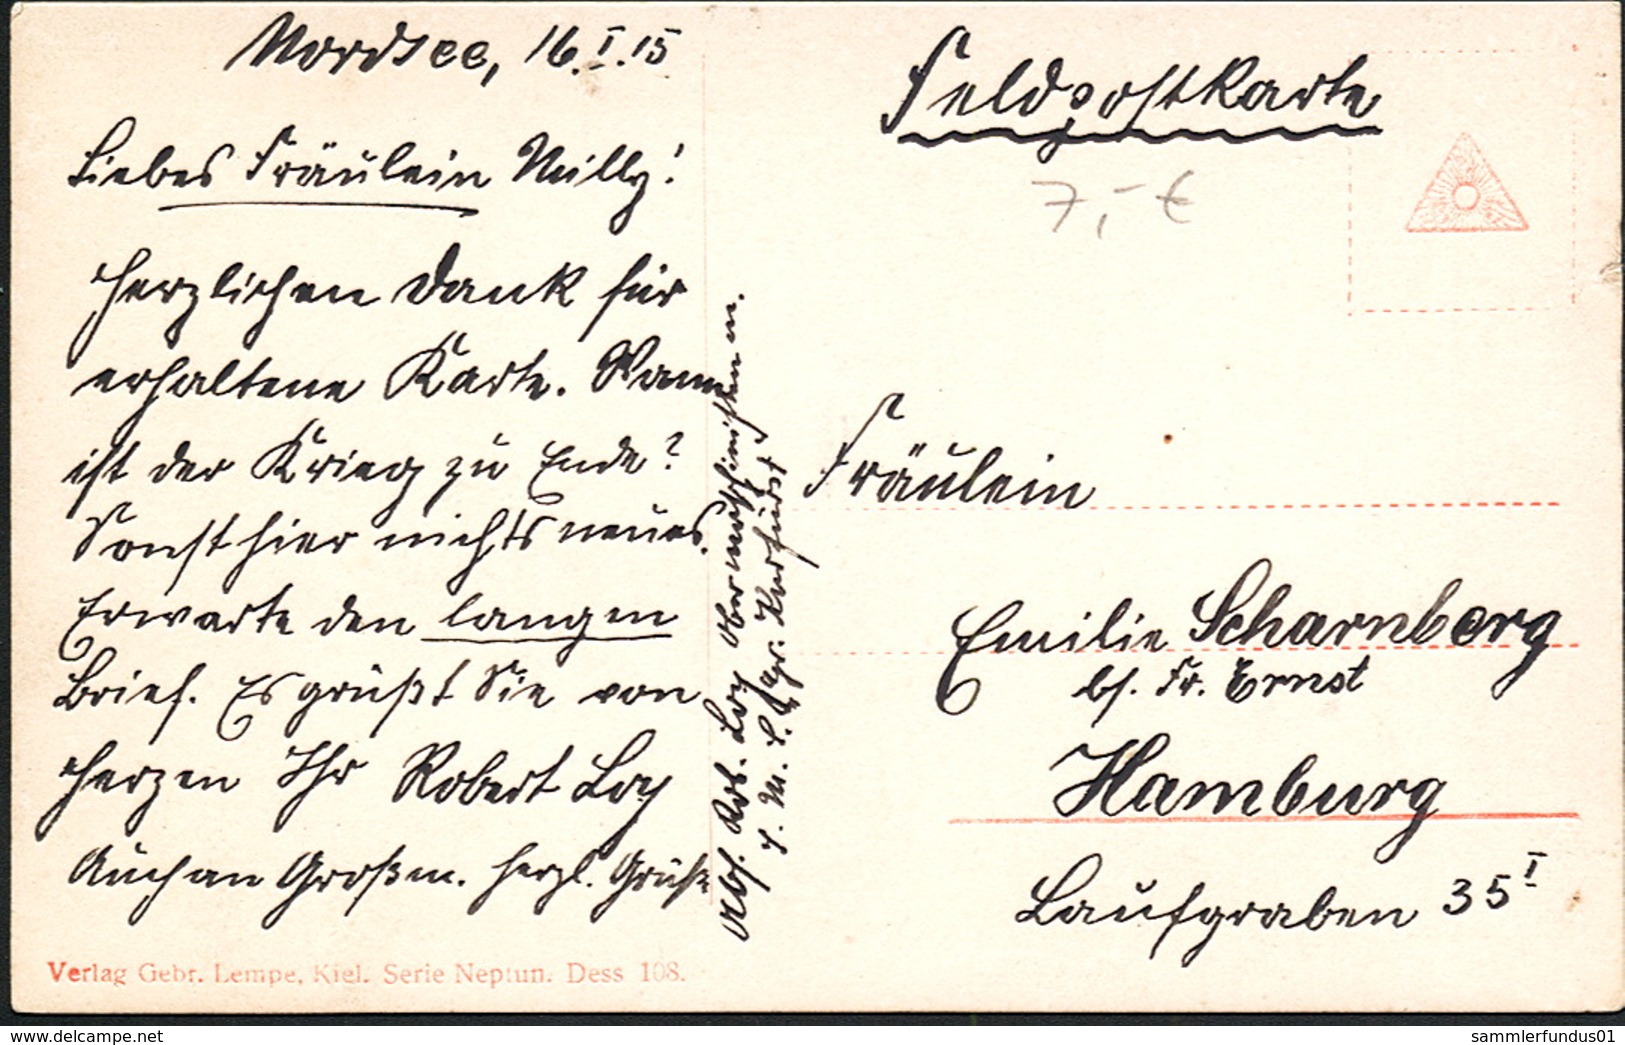 Nordsee, 16.I.15
Liebes Fräulein Milly!
Herzlichen Dank für
erhaltene Karte. Wann
ist der Krieg zu Ende?
Sonst hier nichts neues.
Erwarte den langen
Brief. Es grüßt Sie von
Herzen Ihr Robert Loy
Auch an Großm. herzl. Grüße
Verlag Gebr. Lempe, Kiel. Serie Neptun. Dess 108.
Abs. Rob. Loy Obermaschinisten m.
S. M. S. Kurfürst
Feldpostkarte
7,- €
Fräulein
Emilie Scharnberg
bs. Fr. Ernst
Hamburg
Laufgraben 35 I
delcampe.net
sammlerfundus01